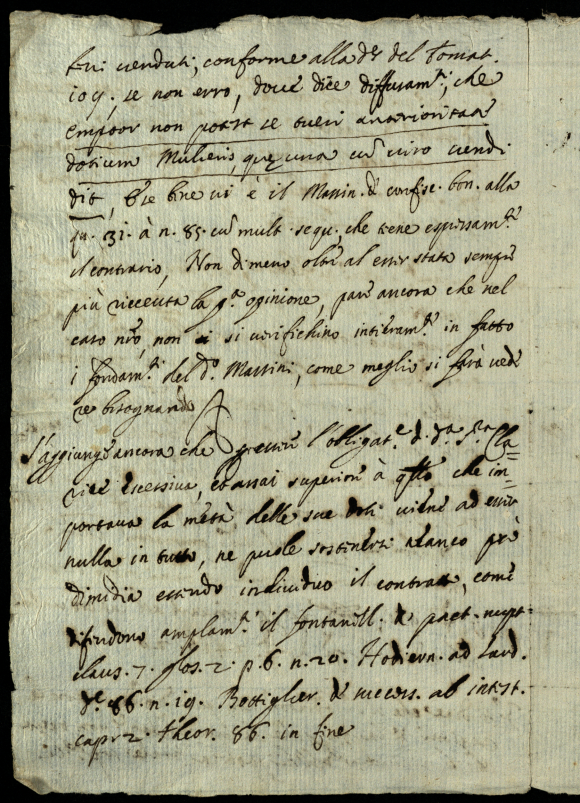 tui venduti, conforme alla dec. del Tomat.
109. se non erro, dove dice diffusam.te, che
emptor non potest se tueri anterioritate
dotium Mulieris, quę una cũ viro vendi
dit, è il Mansin. de confisc. bon. alla
qu. 31. à n. 85. cũ mult. sequ. che tiene espressam.te
il contrario, Non di meno oltre al esser stata sempre
più riceuta la p.a opinione, pare ancora che nel
caso nr̃o, non si verifichino intieram.te in fatto
i fondam.ti del d.o Mansini, come meglio si farà vede
re bisognando
S'aggiunge ancora che l'obligat.e d. d.a S.ra Cla=
rice excessiva, et assai superiore à q̃llo che im=
portava la metà delle sue doti viene ad esser
nulla in tutto, ne puole sostenersi neanco prõ
dimidia essendo individuo il contratto, come
difendono amplam.te il fontanell. de pact. nupt.
claus. 7. glos. 2. p. 6. n. 20. Hodiern. ad Surd.
de.c 86. n. 19. Bottiglier. de success. ab intest.
theor. 86. in fine